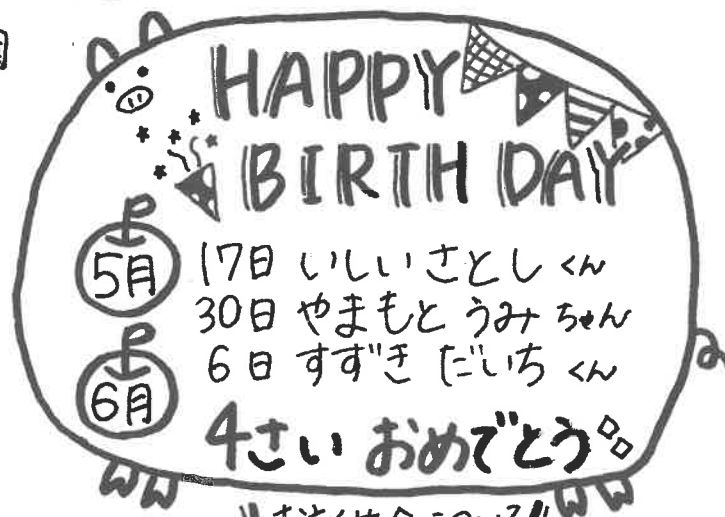 HAPPY
BIRTH DAY
5月
17日 いしいさとしくん
30日 やまもと うみ ちゃん
6月
6日 すずき だいち くん
4さい おめでとう